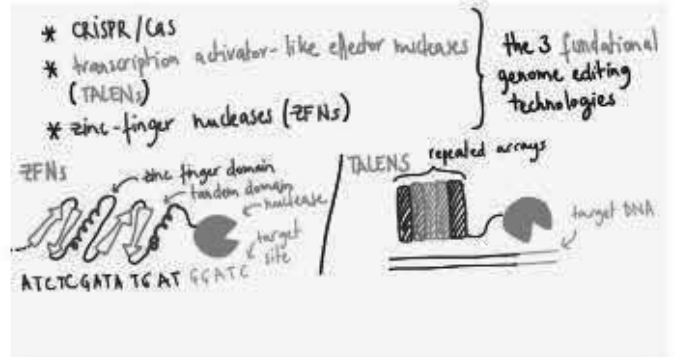 * CRISPR/Cas
* transcription activator-like effector nucleases
(TALENs)
* zinc-finger nucleases (ZFNs)
the 3 fundational
genome editing
technologies
ZFNs
zinc finger domain
tandem domain
nuclease
target
site
ATCTCGATA TG AT GGATC
TALENS
repealed arrays
target DNA